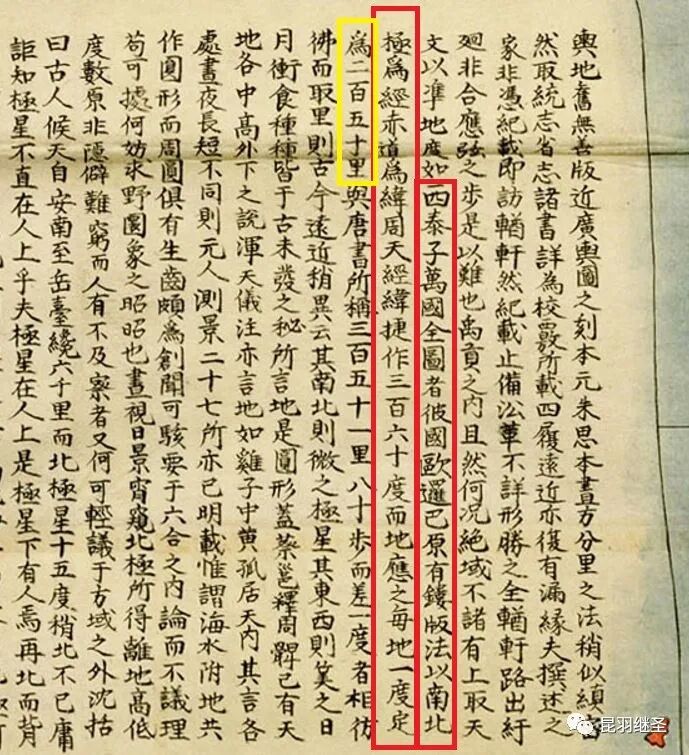 輿地舊無善版近廣輿圖之刻本元朱思本畫方分里之法稍似縝
然取統志省志諸書詳為校覈所載四履遠近亦復有漏緣夫撰述之
家非憑紀載即訪輶軒然紀載止備沿革不詳形勝之全輶軒路出紆
廻非合應弦之步是以難也禹貢之内且然何況絕域不諸有上取天
文以準地度如西泰子萬國全圖者彼國歐邏巴原有鏤版法以南北
極為經赤道為緯周天經緯捷作三百六十度而地應之每地一度定
為二百五十里與唐書所稱三百五十一里八十步而差一度者相彷
彿而取里則古今遠近稍異云其南北則徵之極星其東西則筭之日
月衝食種種皆千古未發之秘所言地是圓形蓋蔡邕釋周髀已有天
地各中高外下之說渾天儀注亦言地如雞子中黃孤居天内其言各
處晝夜長短不同則元人測景二十七所亦已明載惟謂海水附地共
作圓形而周圓俱有生齒頗為創聞可駭要于六合之内論而不議理
苟可據何妨求野圓象之昭昭也晝視日景宵窺北極所得離地高低
度數原非隱僻難窮而人有不及察者又何可輕議于方域之外沈括
曰古人候天自安南至岳臺纔六千里而北極星十五度稍北不已庸
詎知極星不直在人上乎夫極星在人上是極星下有人焉再北而背
昆羽继圣